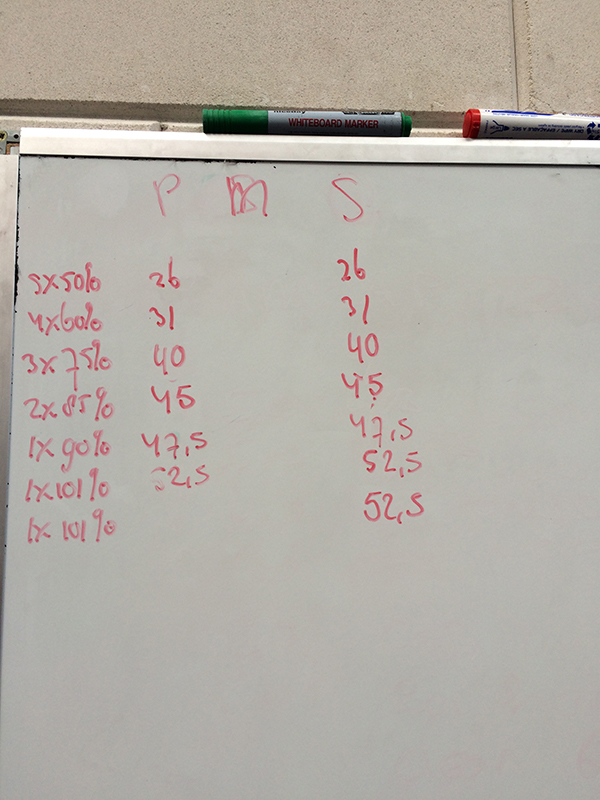 WHITEBOARD MARKER
P M S
5x50% 26 26
4x60% 31 31
3x75% 40 40
2x85% 45 45
1x90% 47,5 47,5
1x101% 52,5 52,5
1x101% 52,5